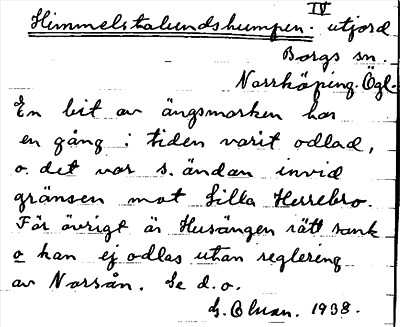 IV
Himmelstalundshumpen. utjord
Borgs sn.
Norrköping. Ögl.
En bit av ängsmarken har
en gång i tiden varit odlad,
o. det var s. ändan invid
gränsen mot Lilla Herrebro.
För övrigt är Husängen rätt sank
o kan ej odlas utan reglering
av Norsån. Se d.o.
1938.